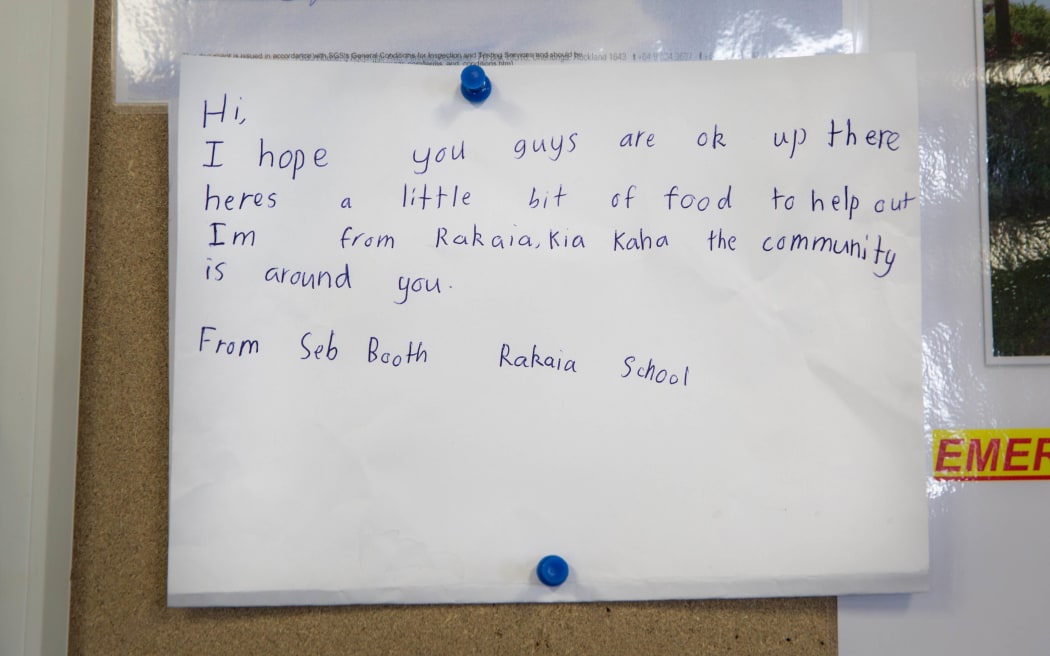 document is issued in accordance with SGS's General Conditions for Inspection and Testing Services and should be
Hi,
I hope you guys are ok up there
heres a little bit of food to help out
Im from Rakaia, Kia Kaha the community
is around you.
From Seb Booth Rakaia School
EMER